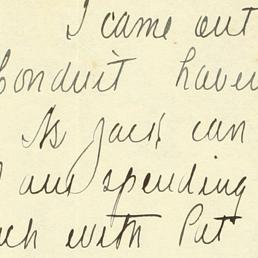 I came out
Conduit haven
As Jack can
I am spending
ch with Pat